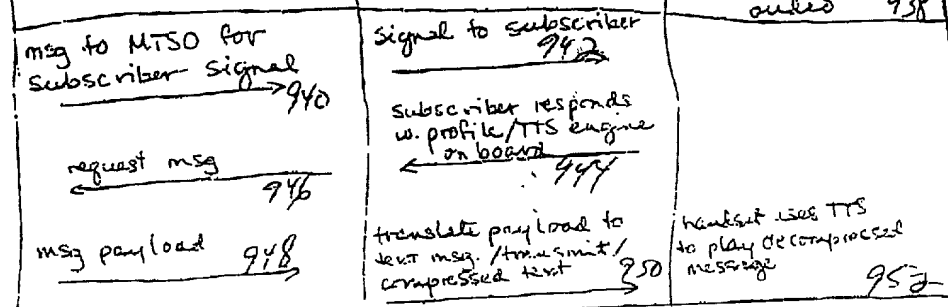 audio 938
msg to MTSO for
subscriber signal
940
request msg
946
msg payload 948
signal to subscriber
942
subscriber responds
w. profile/TTS engine
on board
944
translate payload to
text msg./transmit/
compressed text 950
handset uses TTS
to play decompressed
message
952